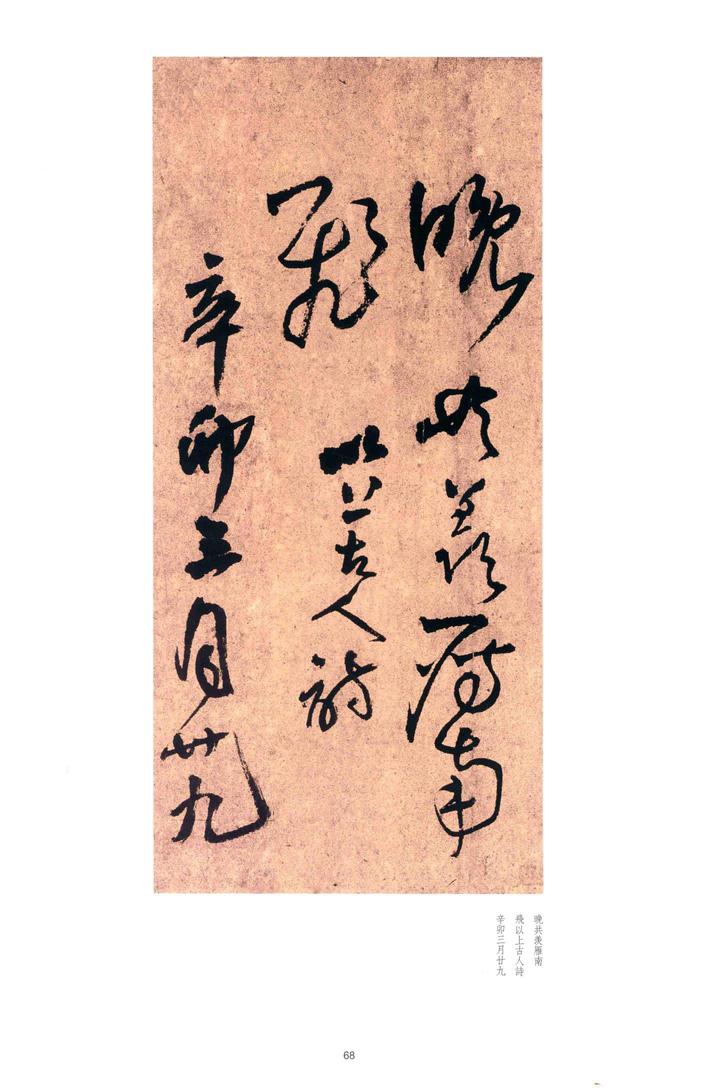 晚共羨雁南
飛以上古人詩
辛卯三月廿九
晚共羨雁南
飛以上古人詩
辛卯三月廿九
68